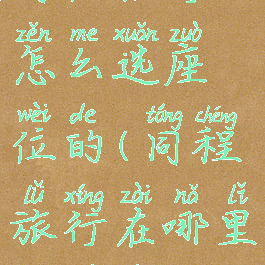 zěn me xuǎn zuò
怎么选座
wèi de tóng chéng
位的(同程
lǚ xíng zài nǎ lǐ
旅行在哪里